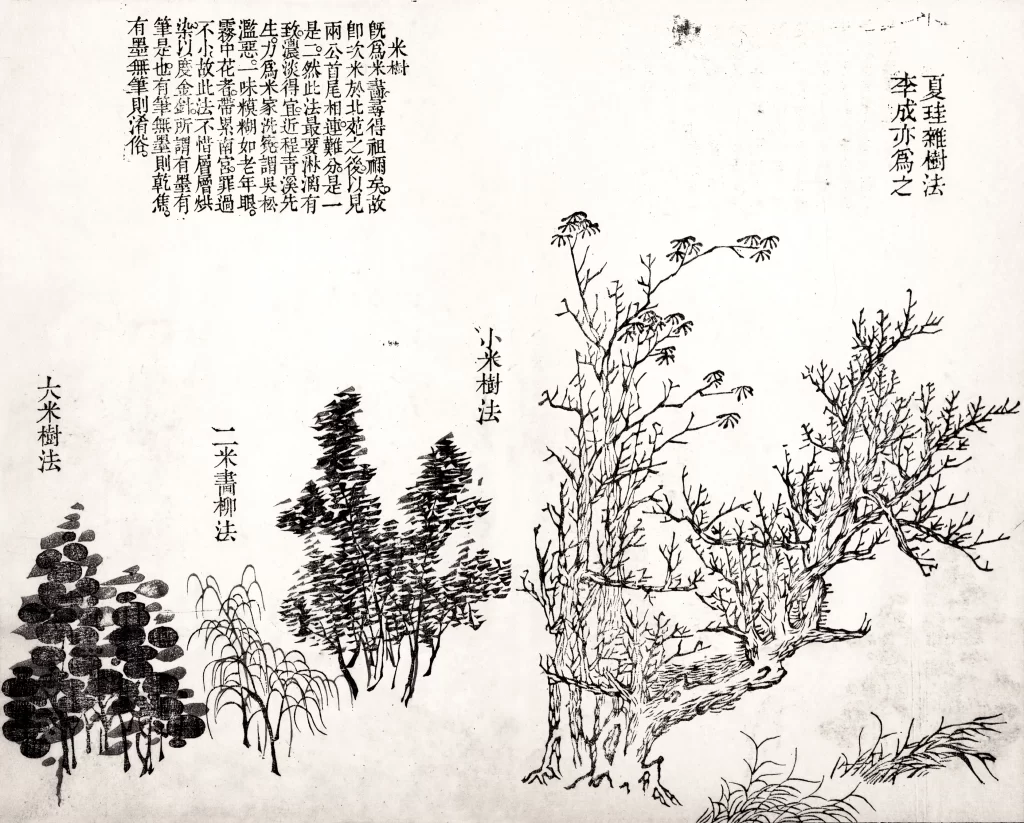 夏珪雜樹法
李成亦爲之
小米樹法
米樹
既爲米畵尋得祖禰矣。故
即次米於北苑之後。以見
兩公首尾相連難分。是一
是二。然此法最要淋漓有
致。濃淡得宜。近程青溪先
生力爲米家洗寃。謂吳松
濫惡。一味糢糊如老年眼。
霧中花者。帶累南宮。罪過
不小。故此法不惜層層烘
染。以度金針。所謂有墨有
筆是也。有筆無墨則乾焦。
有墨無筆則淆俗。
二米畵柳法
大米樹法